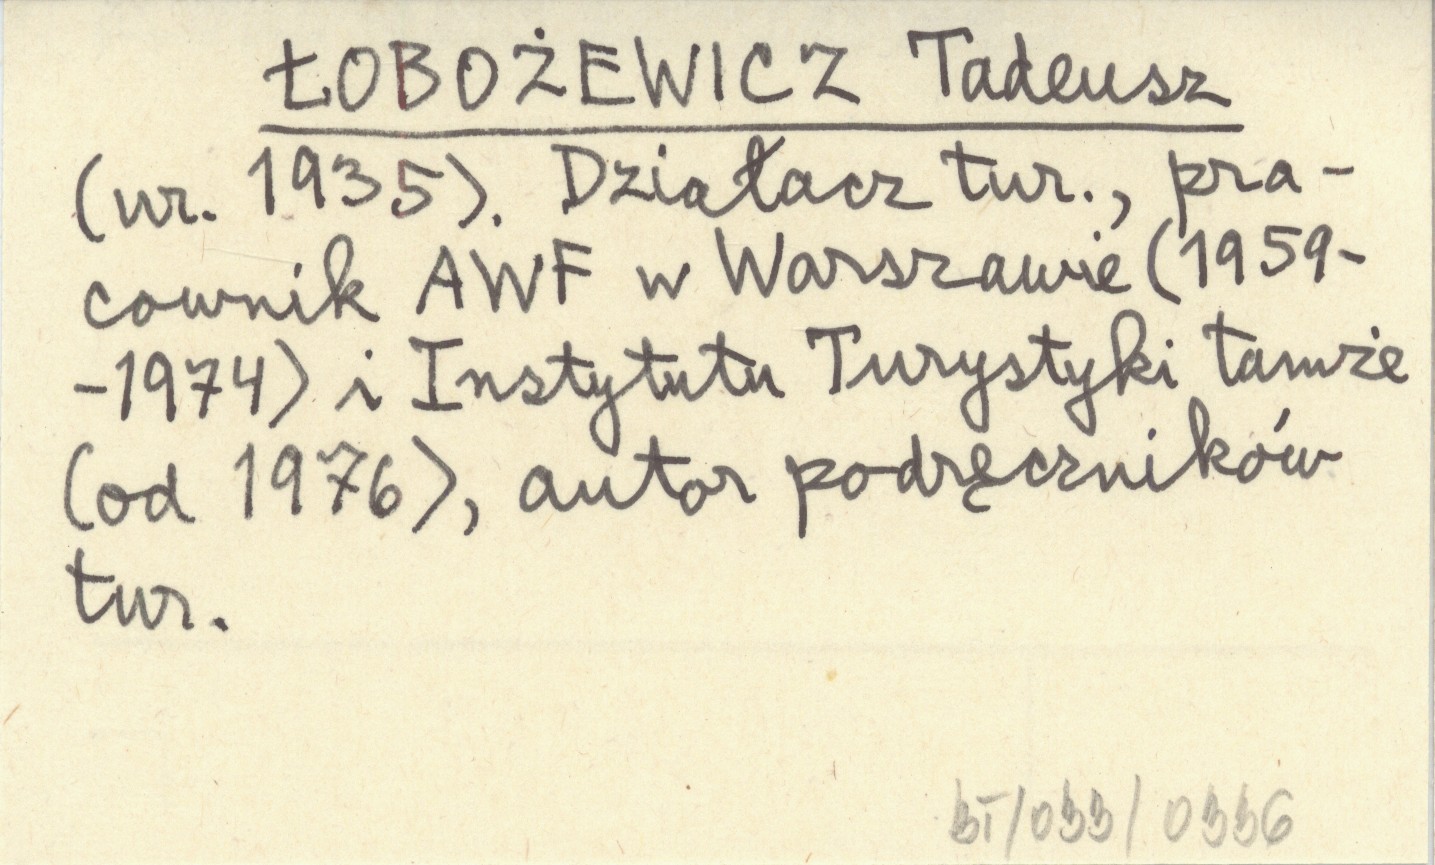 ŁOBOŻEWICZ Tadeusz
(ur. 1935). Działacz tur., pra-
cownik AWF w Warszawie (1959-
-1974) i Instytutu Turystyki tamże
(od 1976), autor podręczników
tur.